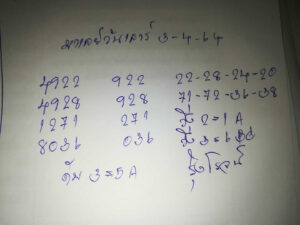 มาเลย์วันเสาร์ 3-4-64
4922 922 22-28-24-20
4928 928 71-72-36-38
1271 271 2=1A
8036 036 3=6
3=5A